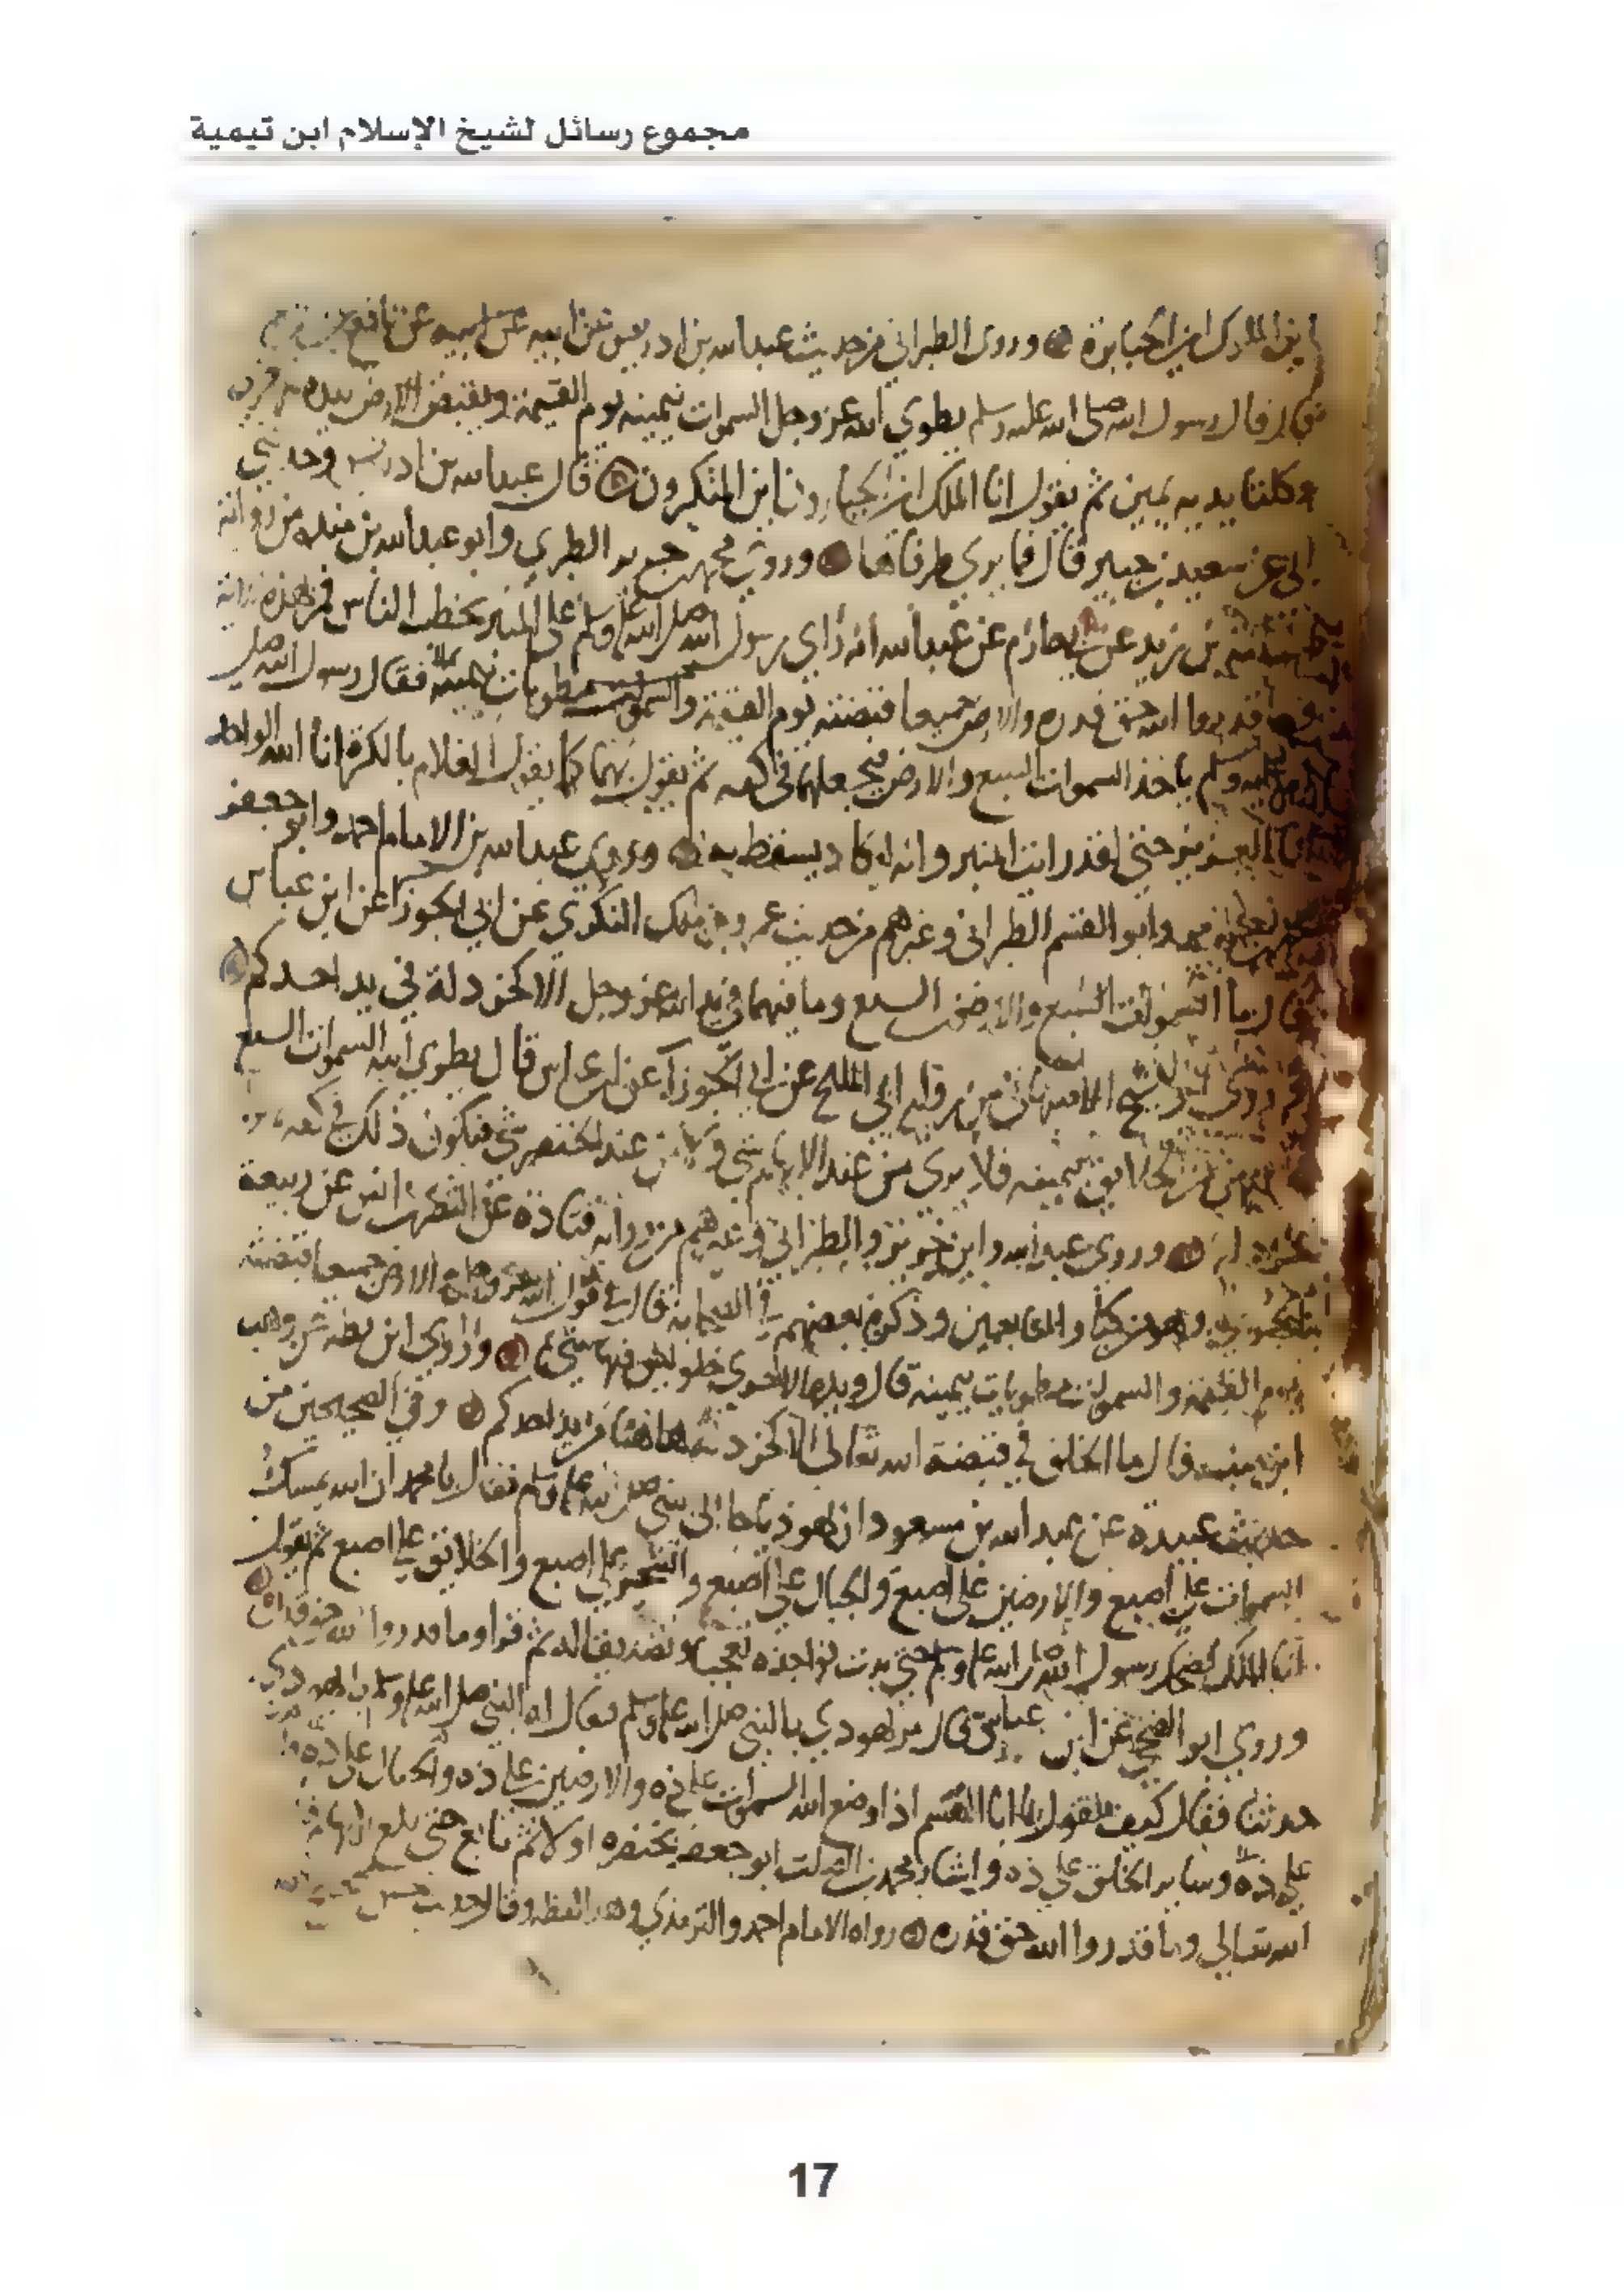 مجموع رسائل لشيخ الإسلام ابن تيمية
اين الملوك اين الجبابرة وروى الطبراني من حديث عبد الله بن ادريس عن ابيه عن نافع
قال قال رسول الله صلى الله عليه وسلم يطوي الله عز وجل السموات بيمينه يوم القيمة ويقبض الارض بيده
وكلتا يديه يمين ثم يقول انا الملك اين الجبارون اين المتكبرون قال عبد الله بن ادريس وحدثني
ابي عن سعيد بن جبير قال فما يرى طرفاها وروى محمد بن جرير الطبري وابو عبد الله بن منده من رواية
بن زيد عن ابي حازم عن عبد الله انه راى رسول الله صلى الله عليه وسلم على المنبر يخطب الناس فمر بهذه الاية
وما قدروا الله حق قدره والارض جميعا قبضته يوم القيمة والسموات مطويات بيمينه فقال رسول الله صلى
الله عليه وسلم ياخذ السموات السبع والارض فيجعلهما في كفه ثم يقول بهما كما يقول الغلام بالكرة انا الله الواحد
انا الله العزيز حتى لقد رايت المنبر وانه ليكاد يسقط به وروى عبد الله بن الامام احمد وابو جعفر
وابو القسم الطبراني وغيرهم من حديث عمرو بن ملك النكري عن ابي الجوزا عن ابن عباس
قال ما السموات السبع والارضون السبع وما فيهما في يد الله عز وجل الا كخردلة في يد احدكم
وروى ابو الشيخ الاصبهاني من رواية ابي المليح عن ابي الجوزا عن ابن عباس قال يطوي الله السموات السبع
الخلائق بيمينه فلا يرى من عند الابهام شي ولا من عند الخنصر شي فيكون ذلك في كفه
وروى عبد الله وابن جرير والطبراني وغيرهم من رواية قتادة عن النضر بن انس عن ربيعة
والتابعين وذكره بعضهم في الصحابة قال في قول الله عز وجل والارض جميعا قبضته
يوم القيمة والسموات مطويات بيمينه قال ويده الاخرى خلو ليس فيها شيء وروى ابن بطه عن وهب
ابن منبه قال ما الخلق في قبضة الله تعالى الا كخردلة هاهنا من يد احدكم وفي الصحيحين من
حديث عبيدة عن عبد الله بن مسعود ان يهوديا جا الى النبي صلى الله عليه وسلم فقال يا محمد ان الله يمسك
السموات على اصبع والارضين على اصبع والجبال على اصبع والشجر على اصبع والخلائق على اصبع ثم يقول
انا الملك فضحك رسول الله صلى الله عليه وسلم حتى بدت نواجذه تعجبا وتصديقا له ثم قرا وما قدروا الله حق قدره
وروى ابو الضحى عن ابن عباس قال مر يهودي بالنبي صلى الله عليه وسلم فقال له النبي صلى الله عليه وسلم يا يهودي
حدثنا فقال كيف تقول يا ابا القسم اذا وضع الله السموات على ذه والارضين على ذه والجبال على ذه
على ذه وساير الخلق على ذه واشار محمد بن الصلت ابو جعفر بخنصره اولا ثم تابع حتى بلغ الابهام
الله تعالى وما قدروا الله حق قدره رواه الامام احمد والترمذي وهذا لفظه وقال حديث حسن
17